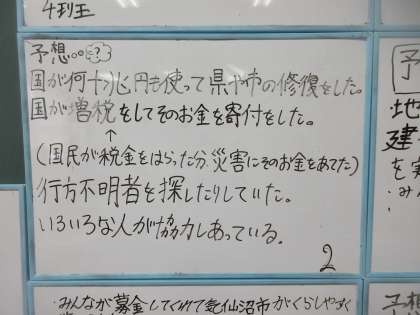 4班
予想。。?
国が何十兆円も使って県や市の修復をした。
国が増税をしてそのお金を寄付をした。
↑
(国民が税金をはらった分、災害にそのお金をあてた)
行方不明者を探したりしていた。
いろいろな人が協力しあっている。
2
・みんなが募金してくれて気仙沼市がくらしやすく
予
地
建
を
・み
予想